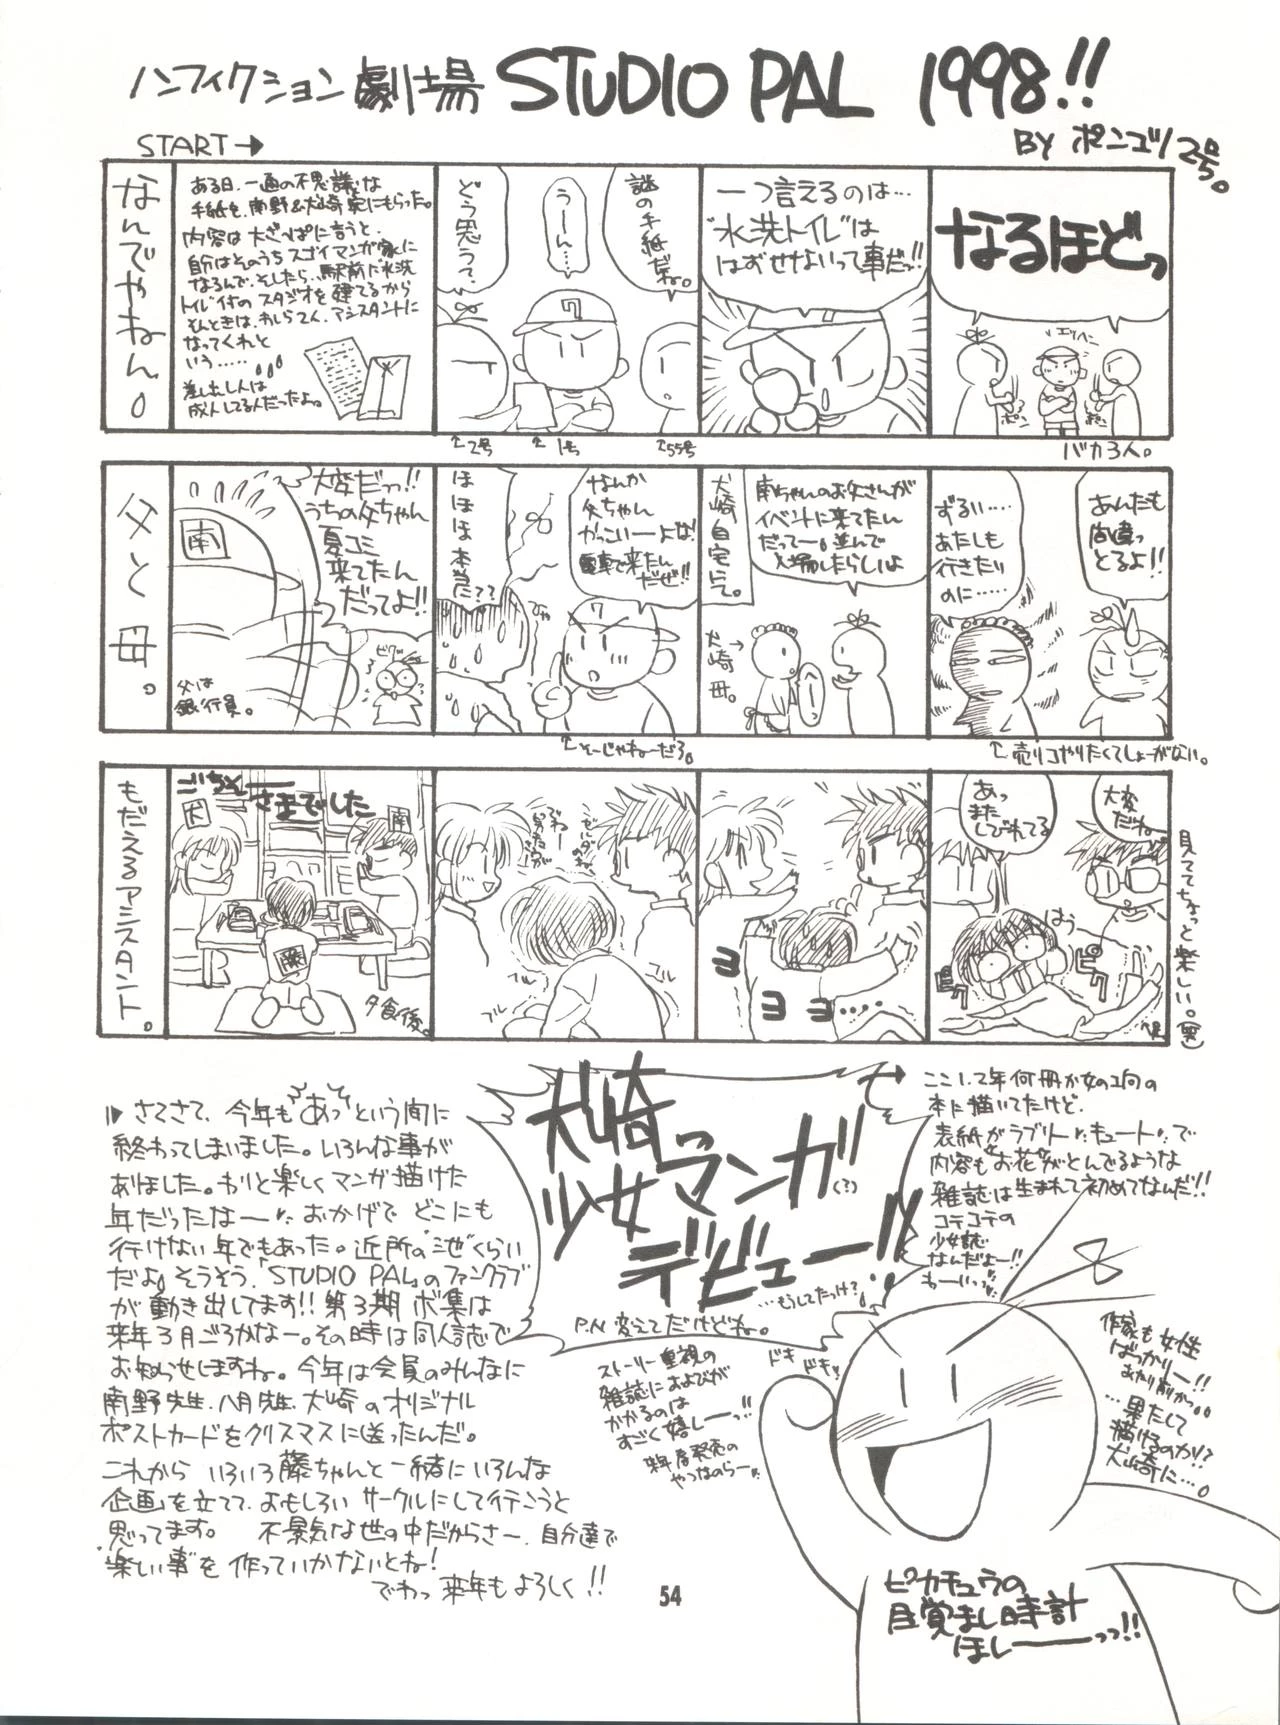 ノンフィクション劇場 STUDIO PAL 1998!!
BY ポンコツ2号。
START→
なんでやねん。
ある日、一通の不思議な
手紙を、南野&犬崎家にもらった。
内容は大ざっぱに言うと、
自分はそのうちスゴイマンガ家に
なるんで、そしたら、駅前に水洗
トイレ付のスタジオを建てるから
そんときは、わしらてん、アシスタントに
なってくれと
いう……
差し出し人は
成人してる人だったよ。
謎の手紙だね。
うーん…
どう思うて
↑2号
↑1号
↑55号
一つ言えるのは…
“水洗トイレ”は
はずせないって事だっ!!
なるほどっ
エッヘン
ポン
バカ3人。
父と母。
大変だっ!!
うちの父ちゃん
夏コミ
来てたん
だってよ!!
南
ビクッ
父は
銀行員。
なんか
父ちゃん
かっこいーよな!
電車で来たん
だぜ!!
ほほほ
本当だ??
↑そーじゃねーだろ。
犬崎自宅にて。
南ちゃんのお父さんが
イベントに来てたん
だってー。並んで
入場したらしいよ
犬崎母。→
あんたも
間違っ
とるよ!!
ずるい…
あたしも
行きたい
のに……
↑売り子やりたくてしょーがない。
もだえるアシスタント。
ごちそーさまでした
犬
南
藤
夕食後。
ブル
ブル
ヨ
ヨ ヨ…
大変
だね
あっ
また
しびれてる
はう
ピク
ピク
見ててちょっと楽しい。(笑)
▶さてさて、今年も“あっ”という間に
終わってしまいました。いろんな事が
ありました。わりと楽しくマンガ描けた
年だったなー おかげで どこにも
行けない年でもあった。近所の池くらい
だよ。そうそう、「STUDIO PAL」のファンクラブ
が動き出してます!! 第3期 ボ集は
来年3月ごろかなー。その時は同人誌で
お知らせしますね。今年は会員のみんなに
南野先生、八月先生、犬崎のオリジナル
ポストカードをクリスマスに送ったんだ。
これから いろいろ藤ちゃんと一緒にいろんな
企画を立てて、おもしろい サークルにして行こうと
思ってます。 不景気な世の中だからさー、自分達で
楽しい事を 作っていかないとね!
でわっ 来年もよろしく!!
犬崎っ
少女マンガ(?)
デビュー!!
…もうしてたっけ?
P.N変えてだけどね。
→ここ1、2年何冊か女のコ向の
本に描いてたけど、
表紙がラブリーキュートで
内容も“お花”がとんでるような
雑誌は生まれて初めてなんだ!!
コテコテの
少女誌
なんだよー!!
わーいっっ
ドキ
ドキッ
ストーリー重視の
雑誌におよびが
かかるのは
すごく嬉しーっ!!
来年春発売の
やつなのらー
作家も女性
ばっかりー!!
あたり前かっ。
…果たして
描けるのか!?
犬崎に…。
ピカチュウの
目覚まし時計
ほしーーっっ!!
54